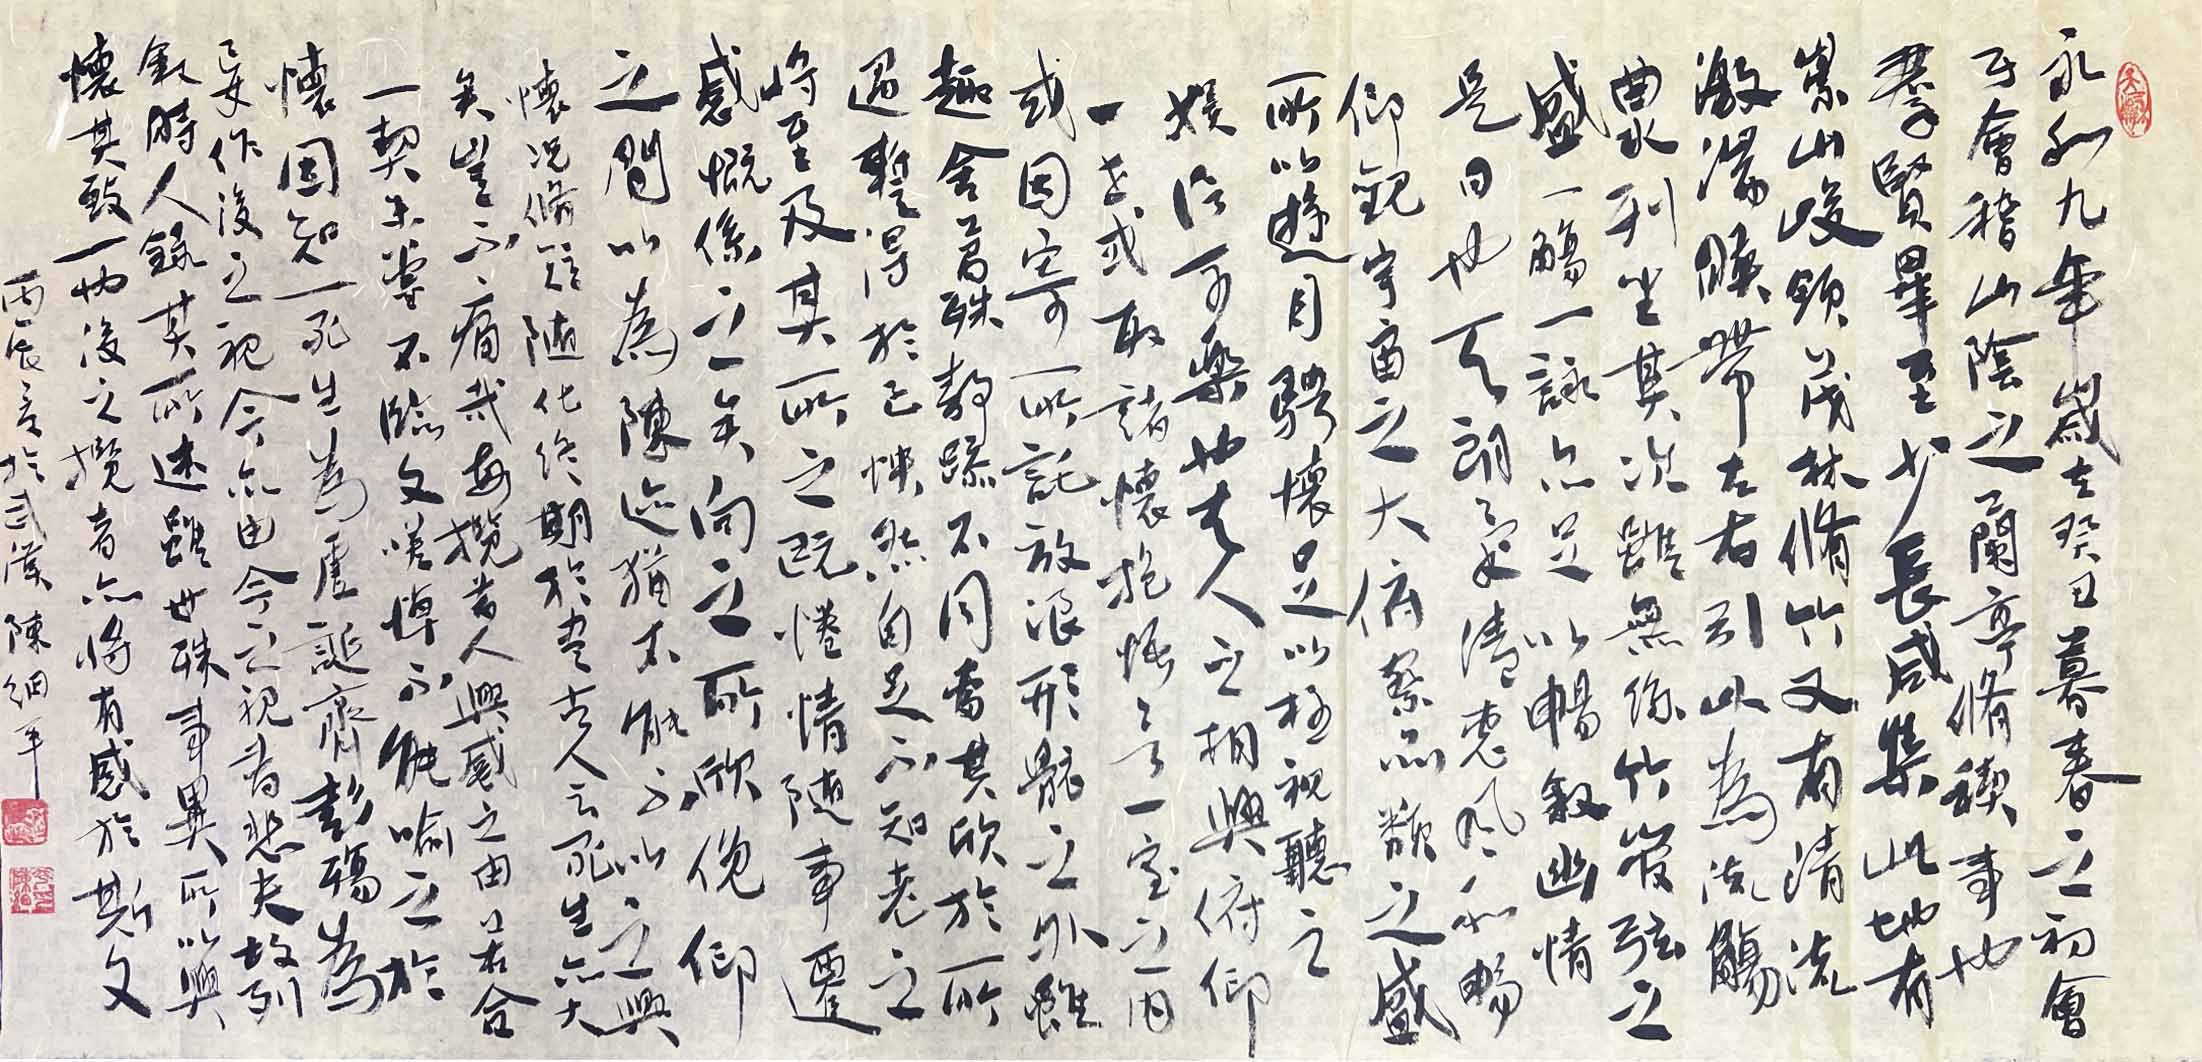 永和九年歲在癸丑暮春之初會
于會稽山陰之蘭亭脩稧事也
羣賢畢至少長咸集此地有
崇山峻領茂林脩竹又有清流
激湍暎帶左右引以為流觴
曲水列坐其次雖無絲竹管弦之
盛一觴一詠亦足以暢敘幽情
是日也天朗氣清惠風和暢
仰觀宇宙之大俯察品類之盛
所以遊目騁懷足以極視聽之
娛信可樂也夫人之相與俯仰
一世或取諸懷抱悟言一室之內
或因寄所託放浪形骸之外雖
趣舍萬殊靜躁不同當其欣於所
遇暫得於己怏然自足不知老之
將至及其所之既惓情隨事遷
感慨係之矣向之所欣俛仰
之間以為陳迹猶不能不以之興
懷況脩短隨化終期於盡古人云死生亦大
矣豈不痛哉每攬昔人興感之由若合
一契未嘗不臨文嗟悼不能喻之於
懷固知一死生為虛誕齊彭殤為
妄作後之視今亦由今之視昔悲夫故列
敘時人錄其所述雖世殊事異所以興
懷其致一也後之攬者亦將有感於斯文
丙辰 於武漢 陳細平